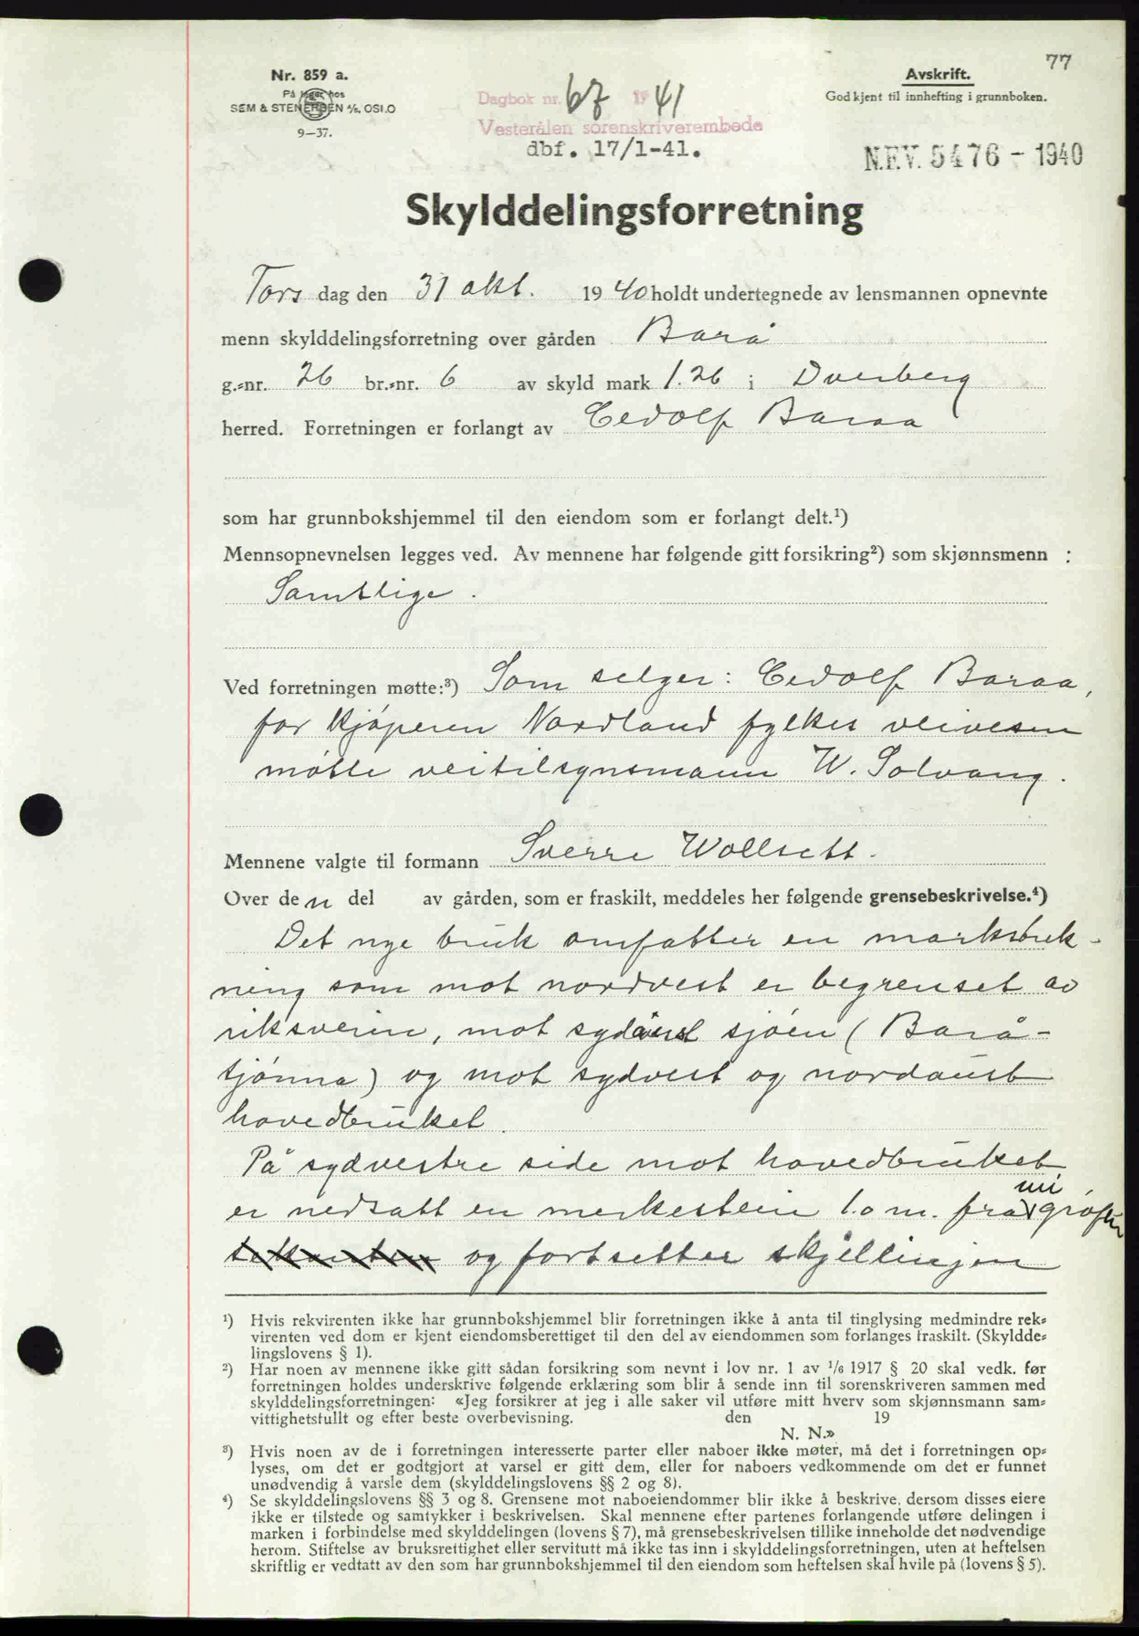 77
Nr. 859 a.
På lager hos
SEM & STENERSEN A/S, OSLO
9-37.
Dagbok nr. 67 1941
Vesterålen sorenskriverembede
dbf. 17/1-41.
Avskrift.
Godkjent til innhefting i grunnboken.
N.E.V. 5476 - 1940
Skylddelingsforretning
Tors dag den 31 okt. 1940 holdt undertegnede av lensmannen opnevnte
menn skylddelingsforretning over gården Barå
g.-nr. 26 br.-nr. 6 av skyld mark 1.26 i Dverberg
herred. Forretningen er forlangt av Cedolf Baraa
som har grunnbokshjemmel til den eiendom som er forlangt delt.¹)
Mennsopnevnelsen legges ved. Av mennene har følgende gitt forsikring²) som skjønnsmenn :
Samtlige.
Ved forretningen møtte:³) Som selger: Cedolf Baraa,
for kjøperen Nordland fylkes veivesen
møtte veitilsynsmann W. Solvang.
Mennene valgte til formann Sverre Wollsett.
Over den del av gården, som er fraskilt, meddeles her følgende grensebeskrivelse.⁴)
Det nye bruk omfatter en markstrek-
ning som mot nordvest er begrenset av
riksveien, mot sydaust sjøen (Barå-
tjønna) og mot sydvest og nordaust
hovedbruket.
På sydvestre side mot hovedbruket
er nedsatt en merkestein 1.0 m. fra vei grøften
og fortsetter skjellinjen
¹) Hvis rekvirenten ikke har grunnbokshjemmel blir forretningen ikke å anta til tinglysing medmindre rek-
virenten ved dom er kjent eiendomsberettiget til den del av eiendommen som forlanges fraskilt. (Skyldde-
lingslovens § 1).
²) Har noen av mennene ikke gitt sådan forsikring som nevnt i lov nr. 1 av 1/6 1917 § 20 skal vedk. før
forretningen holdes underskrive følgende erklæring som blir å sende inn til sorenskriveren sammen med
skylddelingsforretningen: «Jeg forsikrer at jeg i alle saker vil utføre mitt hverv som skjønnsmann sam-
vittighetsfullt og efter beste overbevisning. den 19
N. N.»
³) Hvis noen av de i forretningen interesserte parter eller naboer ikke møter, må det i forretningen op-
lyses, om det er godtgjort at varsel er gitt dem, eller for naboers vedkommende om det er funnet
unødvendig å varsle dem (skylddelingslovens §§ 2 og 8).
⁴) Se skylddelingslovens §§ 3 og 8. Grensene mot naboeiendommer blir ikke å beskrive, dersom disses eiere
ikke er tilstede og samtykker i beskrivelsen. Skal mennene efter partenes forlangende utføre delingen i
marken i forbindelse med skylddelingen (lovens § 7), må grensebeskrivelsen tillike inneholde det nødvendige
herom. Stiftelse av bruksrettighet eller servitutt må ikke tas inn i skylddelingsforretningen, uten at heftelsen
skriftlig er vedtatt av den som har grunnbokshjemmel til den eiendom som heftelsen skal hvile på (lovens § 5).